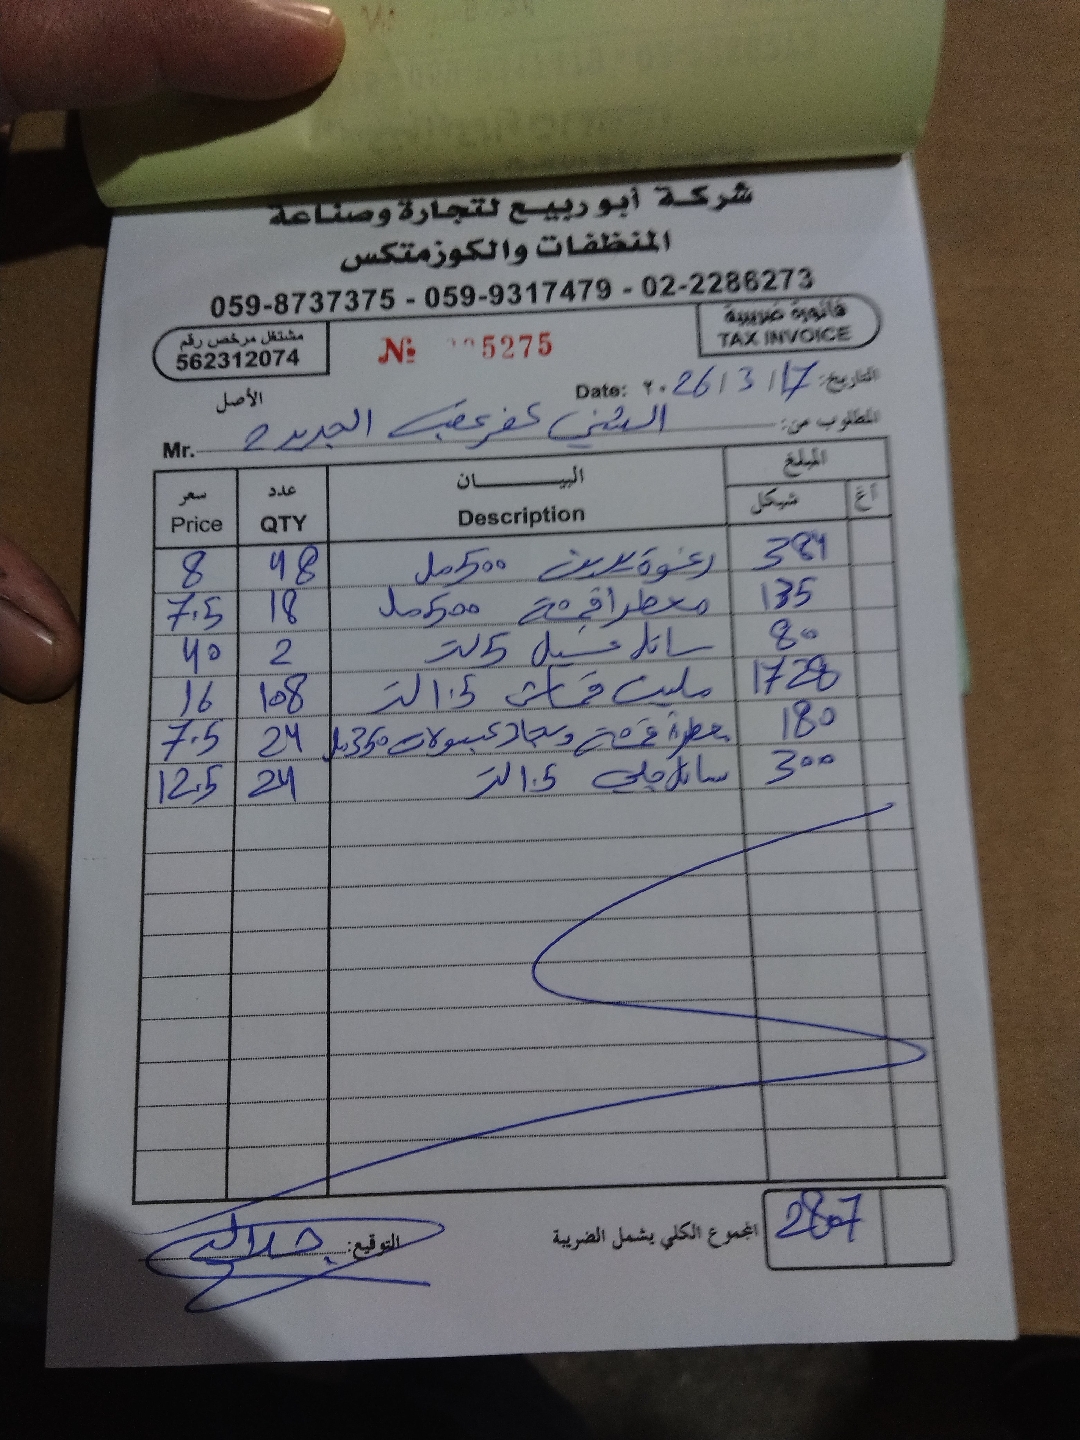 شركة أبو ربيع لتجارة وصناعة
المنظفات والكوزمتكس
059-8737375 - 059-9317479 - 02-2286273
مشتغل مرخص رقم
562312074
№ 5275
فاتورة ضريبية
TAX INVOICE
الأصل
Date: ٢٠26/3/17 التاريخ:
Mr. الشني كفر عقب الجديد 2 المطلوب من:
سعر عدد البيـــــــان المبلغ
Price QTY Description شيكل أغ
8 48 رغوة 500مل 384
7.5 18 معطر اقمشة 500مل 135
40 2 سائل غسيل 5لتر 80
16 108 ملين قماش 1.5لتر 1728
7.5 24 معطر اقمشة وسجاد كبسولات 350مل 180
12.5 24 سائل جلي 1.5لتر 300
المجموع الكلي يشمل الضريبة 2807
التوقيع: